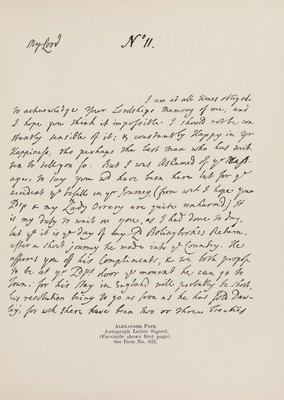 My Lord
No 11.
I am at all times obliged
to acknowledge Your Lordship's Memory of me, and
I hope you think it impossible I should not be con
stantly sensible of it; & constantly Happy in yr
Happiness, tho perhaps the last man who has writ
ten to tell you so. But I was Ashamed of ye Mess
age, to say you wd have been here but for ye
accident yt befell in yr Journey (from wch I hope Yr
Ldp & my Lady Orrery are quite unharmed) It
is my duty to wait on you, as I had done to day,
but yt it is ye day of my Ld Bolingbroke's Return,
after a short journey he made into ye Country. He
assures you of his Compliments, & we both propose
to be at yr Ldps door ye moment he can go to
Town: for his Stay in England will probably be short,
his resolution being to go as soon as he has sold Daw-
ley, for wch there have been two or three Treaties
Alexander Pope.
Autograph Letter Signed.
(Facsimile shows first page).
See Item No. 632.